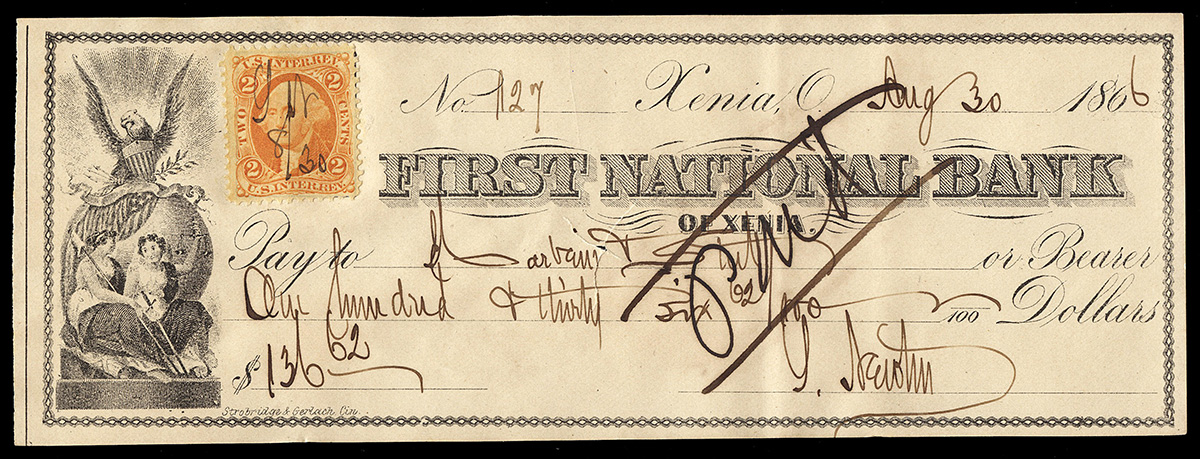 U.S. INTER. REV.
2 2
TWO CENTS
8/30
2 2
U.S. INTER. REV.
No. 127 Xenia, O. Aug 30 1866
FIRST NATIONAL BANK
OF XENIA.
Pay to or Bearer
One hundred & thirty six 62/100 100 Dollars
$136 62
Strobridge & Gerlach Cin.